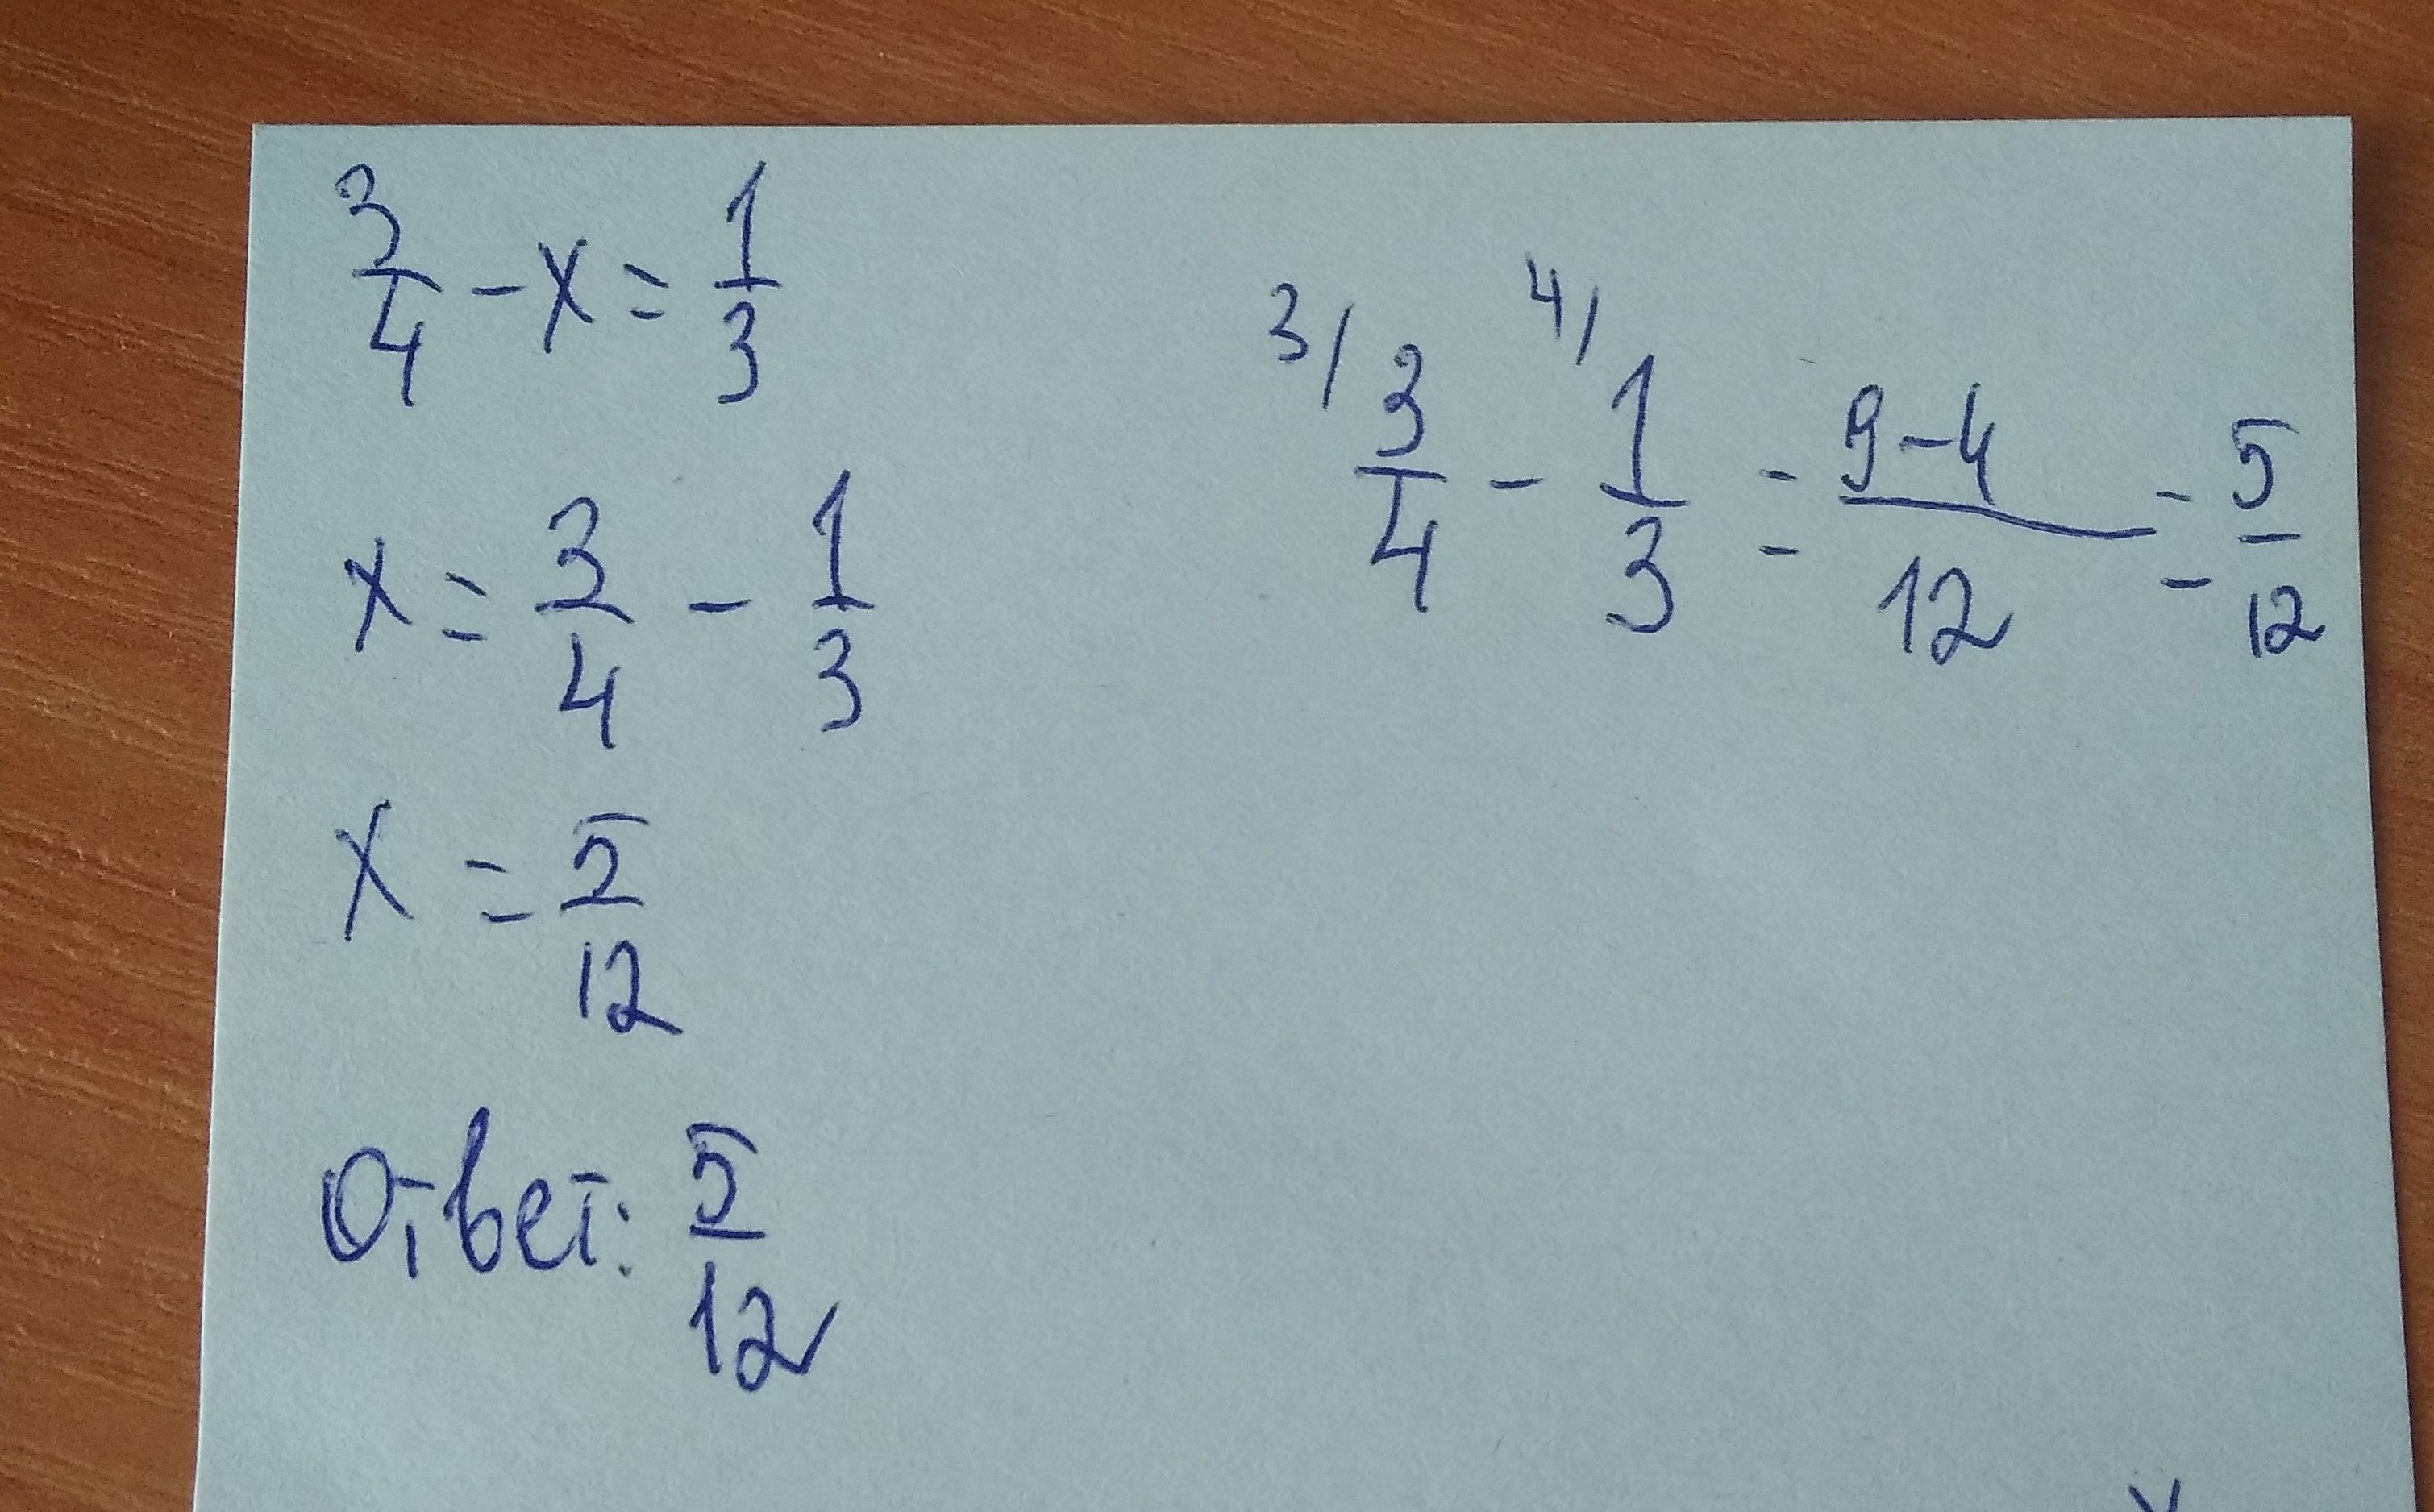 3/4 - x = 1/3
x = 3/4 - 1/3
x = 5/12
Ответ: 5/12
3/ 3/4 - 4/ 1/3 = (9-4)/12 = 5/12